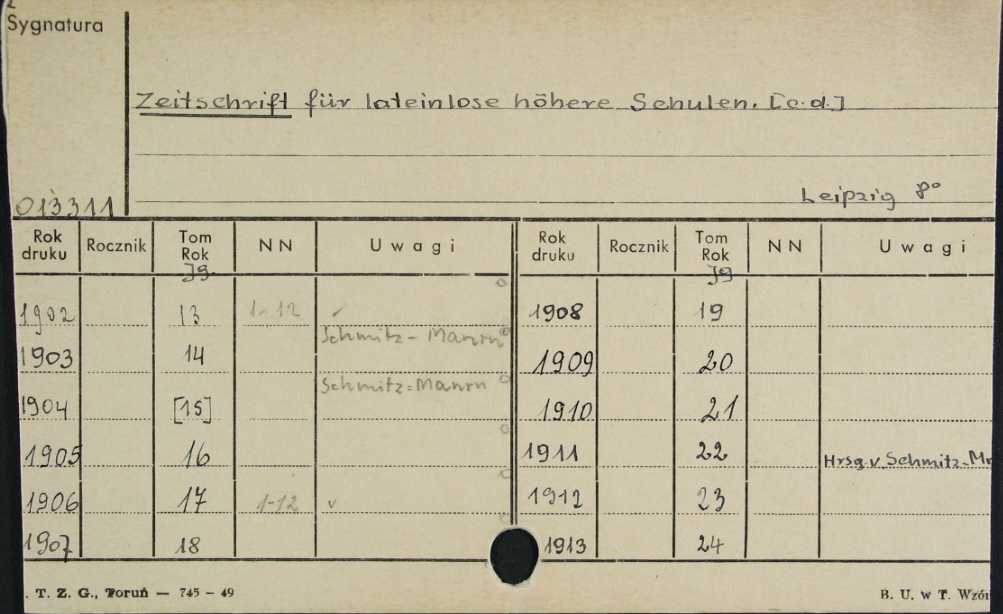 Sygnatura
Zeitschrift für lateinlose höhere Schulen. [c.d.]
Leipzig 8º
013311
Rok druku Rocznik Tom Rok NN Uwagi Rok druku Rocznik Tom Rok NN Uwagi
Jg. Jg
1902 13 1-12 1908 19
Schmitz-
1903 14 1909 20
Schmitz=
1904 [15] 1910 21
1905 16 1911 22 Hrsg. v. Schmitz-
1906 17 1-12 v 1912 23
1907 18 1913 24
. T. Z. G., Toruń — 745 - 49 B. U. w T. Wzór